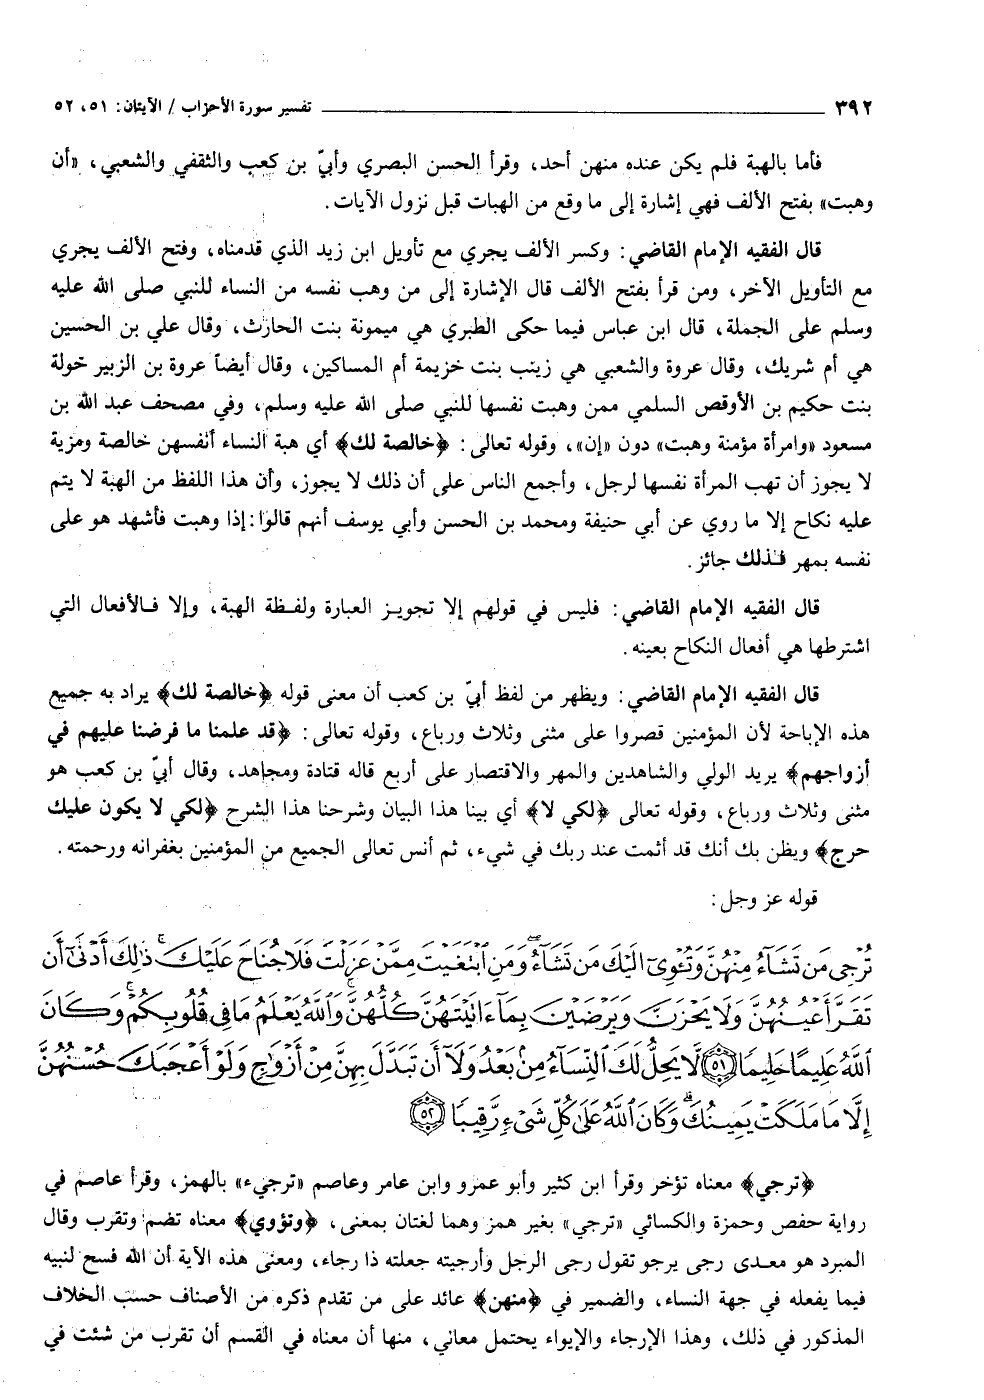 ٣٩٢ تفسير سورة الأحزاب / الآيتان: ٥١، ٥٢
فأما بالهبة فلم يكن عنده منهن أحد، وقرأ الحسن البصري وأبيّ بن كعب والثقفي والشعبي، «أن
وهبت» بفتح الألف فهي إشارة إلى ما وقع من الهبات قبل نزول الآيات.
قال الفقيه الإمام القاضي: وكسر الألف يجري مع تأويل ابن زيد الذي قدمناه، وفتح الألف يجري
مع التأويل الآخر، ومن قرأ بفتح الألف قال الإشارة إلى من وهب نفسه من النساء للنبي صلى الله عليه
وسلم على الجملة، قال ابن عباس فيما حكى الطبري هي ميمونة بنت الحارث، وقال علي بن الحسين
هي أم شريك، وقال عروة والشعبي هي زينب بنت خزيمة أم المساكين، وقال أيضاً عروة بن الزبير خولة
بنت حكيم بن الأوقص السلمي ممن وهبت نفسها للنبي صلى الله عليه وسلم، وفي مصحف عبد الله بن
مسعود «وامرأة مؤمنة وهبت» دون «إن»، وقوله تعالى: ﴿خالصة لك﴾ أي هبة النساء أنفسهن خالصة ومزية
لا يجوز أن تهب المرأة نفسها لرجل، وأجمع الناس على أن ذلك لا يجوز، وأن هذا اللفظ من الهبة لا يتم
عليه نكاح إلا ما روي عن أبي حنيفة ومحمد بن الحسن وأبي يوسف أنهم قالوا: إذا وهبت فأشهد هو على
نفسه بمهر فذلك جائز.
قال الفقيه الإمام القاضي: فليس في قولهم إلا تجويز العبارة ولفظة الهبة، وإلا فالأفعال التي
اشترطها هي أفعال النكاح بعينه.
قال الفقيه الإمام القاضي: ويظهر من لفظ أبيّ بن كعب أن معنى قوله ﴿خالصة لك﴾ يراد به جميع
هذه الإباحة لأن المؤمنين قصروا على مثنى وثلاث ورباع، وقوله تعالى: ﴿قد علمنا ما فرضنا عليهم في
أزواجهم﴾ يريد الولي والشاهدين والمهر والاقتصار على أربع قاله قتادة ومجاهد، وقال أبيّ بن كعب هو
مثنى وثلاث ورباع، وقوله تعالى ﴿لكي لا﴾ أي بينا هذا البيان وشرحنا هذا الشرح ﴿لكي لا يكون عليك
حرج﴾ ويظن بك أنك قد أثمت عند ربك في شيء، ثم أنس تعالى الجميع من المؤمنين بغفرانه ورحمته.
قوله عز وجل:
تُرْجِى مَن تَشَآءُ مِنْهُنَّ وَتُـْٔوِىٓ إِلَيْكَ مَن تَشَآءُ ۖ وَمَنِ ٱبْتَغَيْتَ مِمَّنْ عَزَلْتَ فَلَا جُنَاحَ عَلَيْكَ ۚ ذَٰلِكَ أَدْنَىٰٓ أَن
تَقَرَّ أَعْيُنُهُنَّ وَلَا يَحْزَنَّ وَيَرْضَيْنَ بِمَآ ءَاتَيْتَهُنَّ كُلُّهُنَّ ۚ وَٱللَّهُ يَعْلَمُ مَا فِى قُلُوبِكُمْ ۚ وَكَانَ
ٱللَّهُ عَلِيمًا حَلِيمًا ﴿٥١﴾ لَّا يَحِلُّ لَكَ ٱلنِّسَآءُ مِنۢ بَعْدُ وَلَآ أَن تَبَدَّلَ بِهِنَّ مِنْ أَزْوَٰجٍ وَلَوْ أَعْجَبَكَ حُسْنُهُنَّ
إِلَّا مَا مَلَكَتْ يَمِينُكَ ۗ وَكَانَ ٱللَّهُ عَلَىٰ كُلِّ شَىْءٍ رَّقِيبًا ﴿٥٢﴾
﴿ترجي﴾ معناه تؤخر وقرأ ابن كثير وأبو عمرو وابن عامر وعاصم «ترجيء» بالهمز، وقرأ عاصم في
رواية حفص وحمزة والكسائي «ترجي» بغير همز وهما لغتان بمعنى، ﴿وتؤوي﴾ معناه تضم وتقرب وقال
المبرد هو معدى رجى يرجو تقول رجى الرجل وأرجيته جعلته ذا رجاء، ومعنى هذه الآية أن الله فسح لنبيه
فيما يفعله في جهة النساء، والضمير في ﴿منهن﴾ عائد على من تقدم ذكره من الأصناف حسب الخلاف
المذكور في ذلك، وهذا الإرجاء والإيواء يحتمل معاني، منها أن معناه في القسم أن تقرب من شئت في